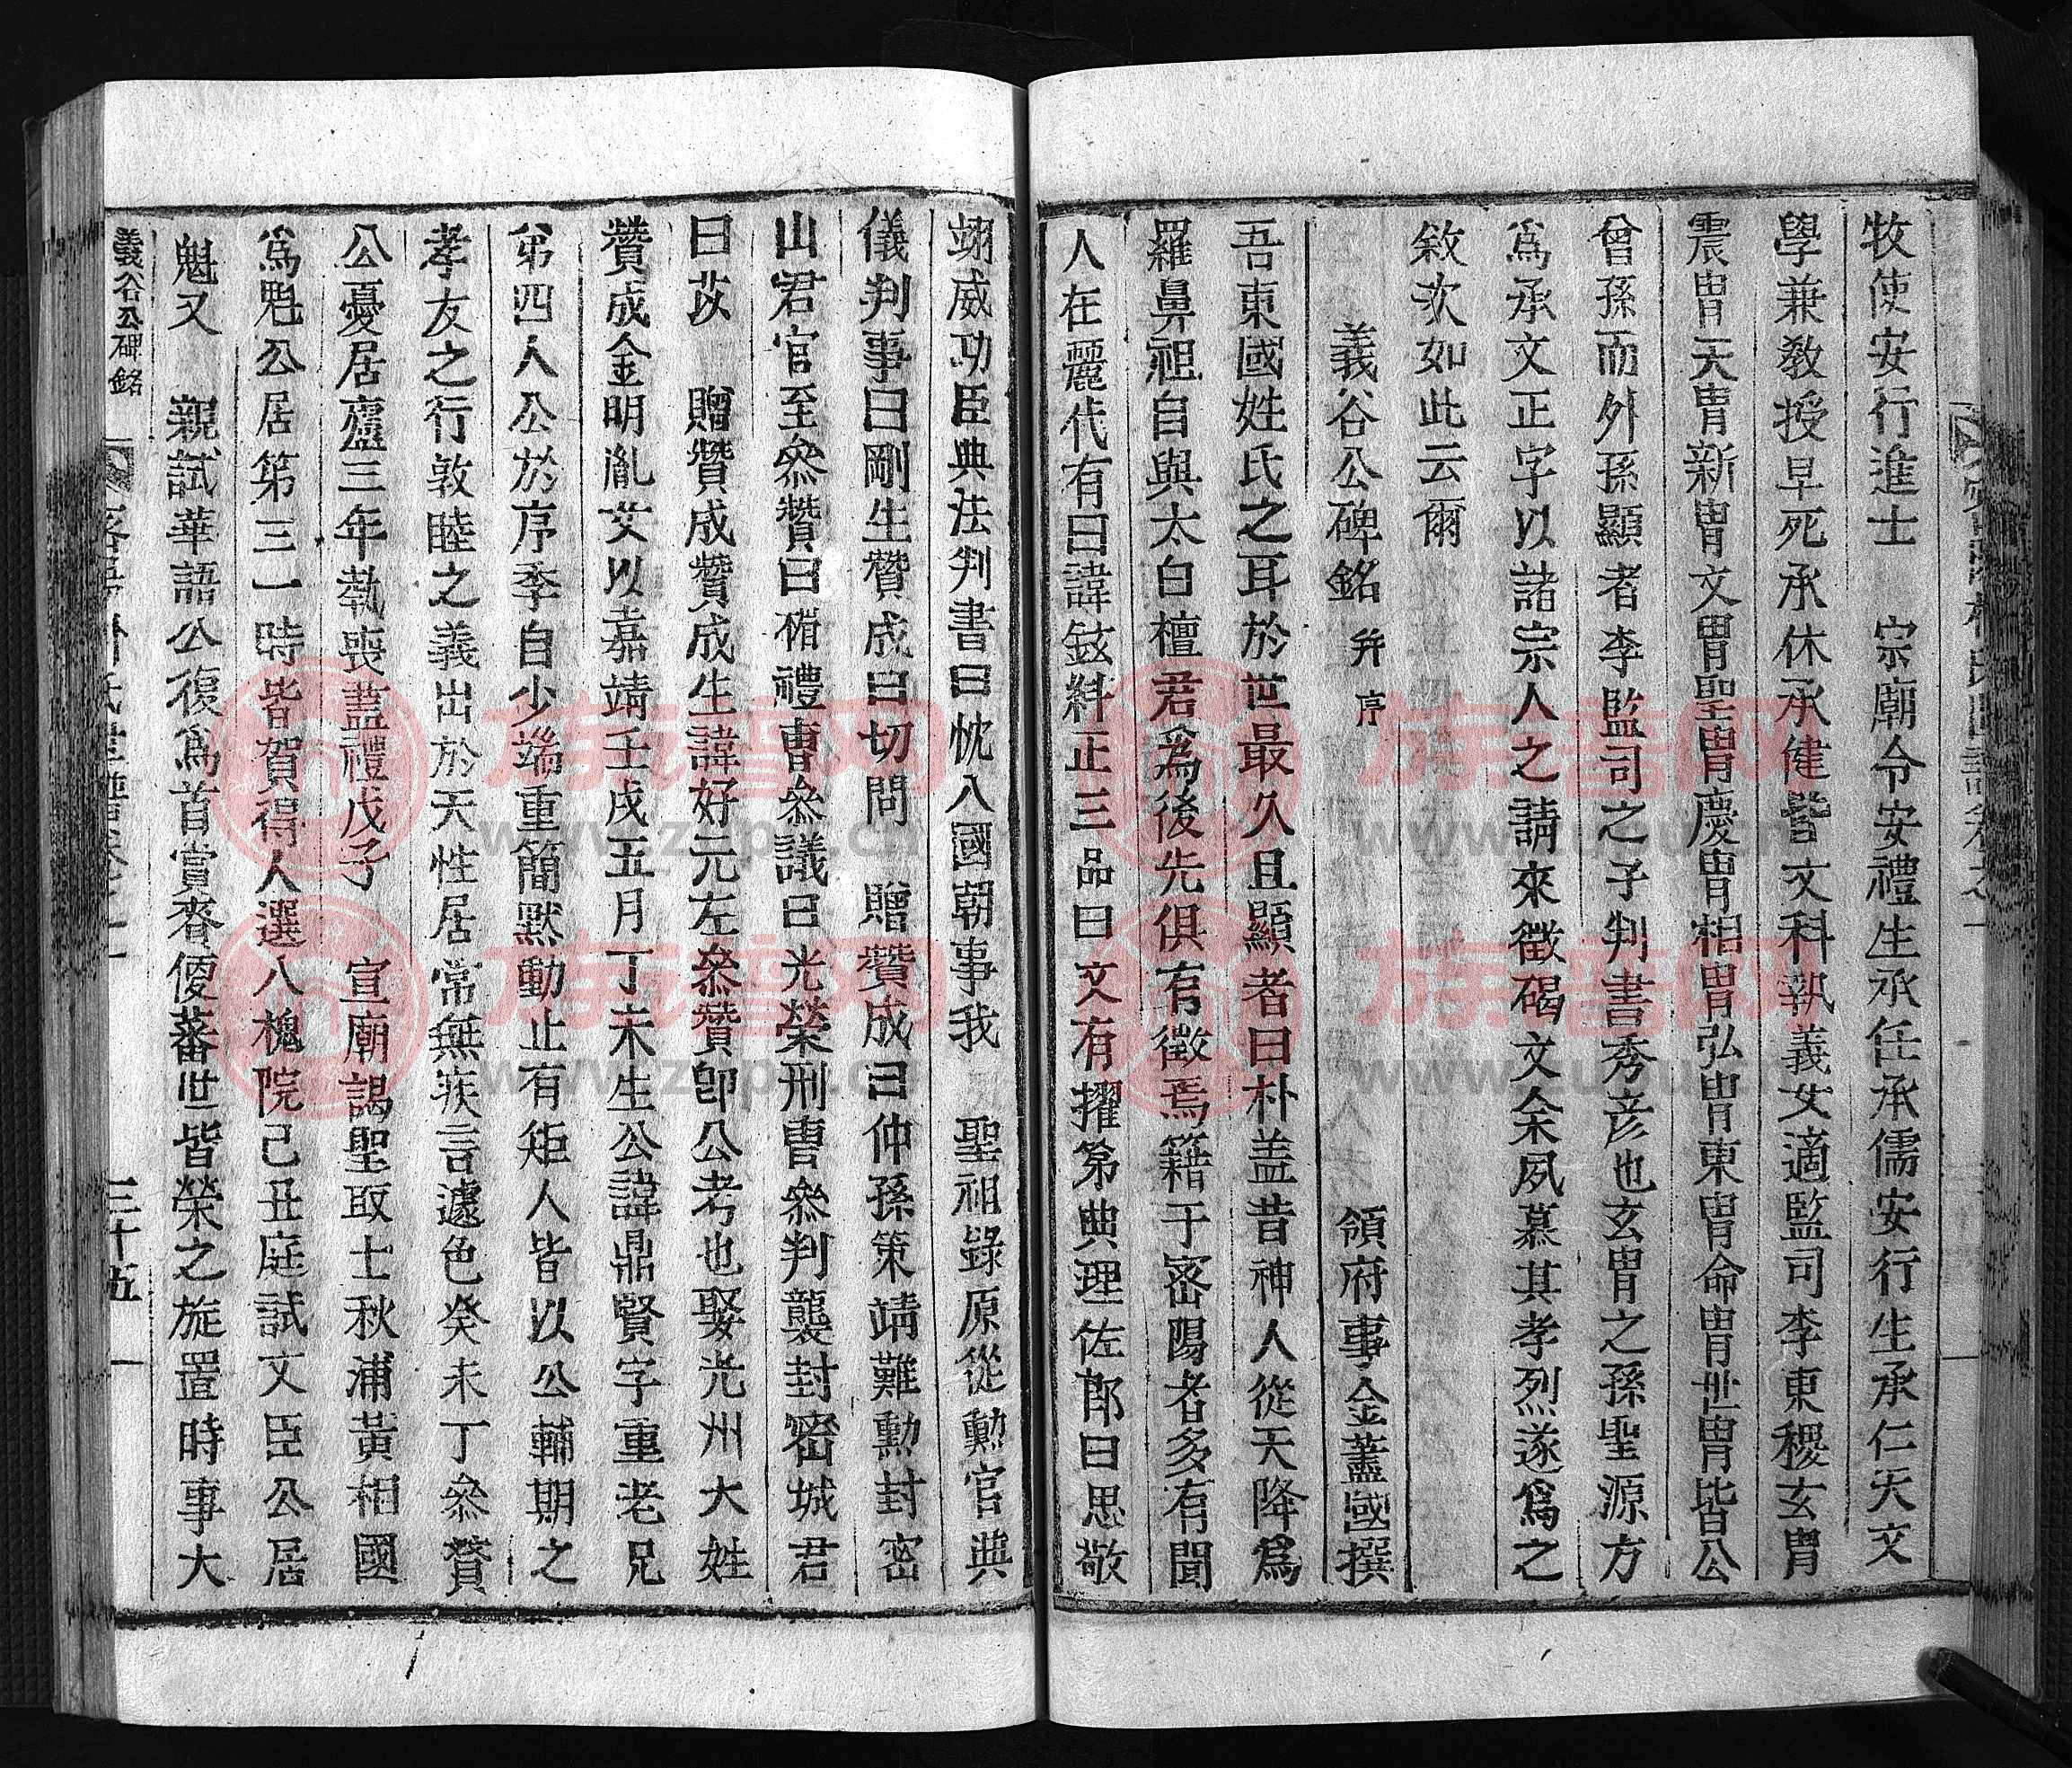 牧使安行進士 宗廟令安禮生承任承儒安行生承仁天文
學兼教授早死承休承健皆文科執義女適監司李東稷玄胄
震胄天胄新胄文胄聖胄慶胄相胄弘胄東胄命胄世胄皆公
曾孫而外孫顯者李監司之子判書秀彦也玄胄之孫聖源方
爲承文正字以諸宗人之請來徵碣文余夙慕其孝烈遂爲之
敘次如此云爾
義谷公碑銘 幷序 領府事金蓋國撰
吾東國姓氏之耳於世最久且顯者曰朴盖昔神人從天降爲
羅鼻祖自與太白檀君爲後先俱有徵焉籍于密陽者多有聞
人在麗代有曰諱鉉糾正三品曰文有擢第典理佐郎曰思敬
翊威功臣典法判書曰忱入國朝事我 聖祖錄原從勳官典
儀判事曰剛生贊成曰切問 贈贊成曰仲孫策靖難勳封密
山君官至參贊曰楣禮曹參議曰光榮刑曹參判襲封密城君
曰苡 贈贊成贊成生諱好元左參贊卽公考也娶光州大姓
贊成金明胤女以嘉靖壬戌五月丁未生公諱鼎賢字重老兄
弟四人公於序季自少端重簡默動止有矩人皆以公輔期之
孝友之行敦睦之義出於天性居常無疾言遽色癸未丁參贊
公憂居廬三年執喪盖禮戊子 宣廟謁聖取士秋浦黃相國
爲魁公居第三一時皆賀得人選八槐院己丑庭試文臣公居
魁又 親試華語公復爲首賞賚優蕃世皆榮之旋罣時事大
義谷公碑銘 三十五
族谱网
www.zupu.cn
族谱网
www.zupu.cn
族谱网
www.zupu.cn
族谱网
www.zupu.cn